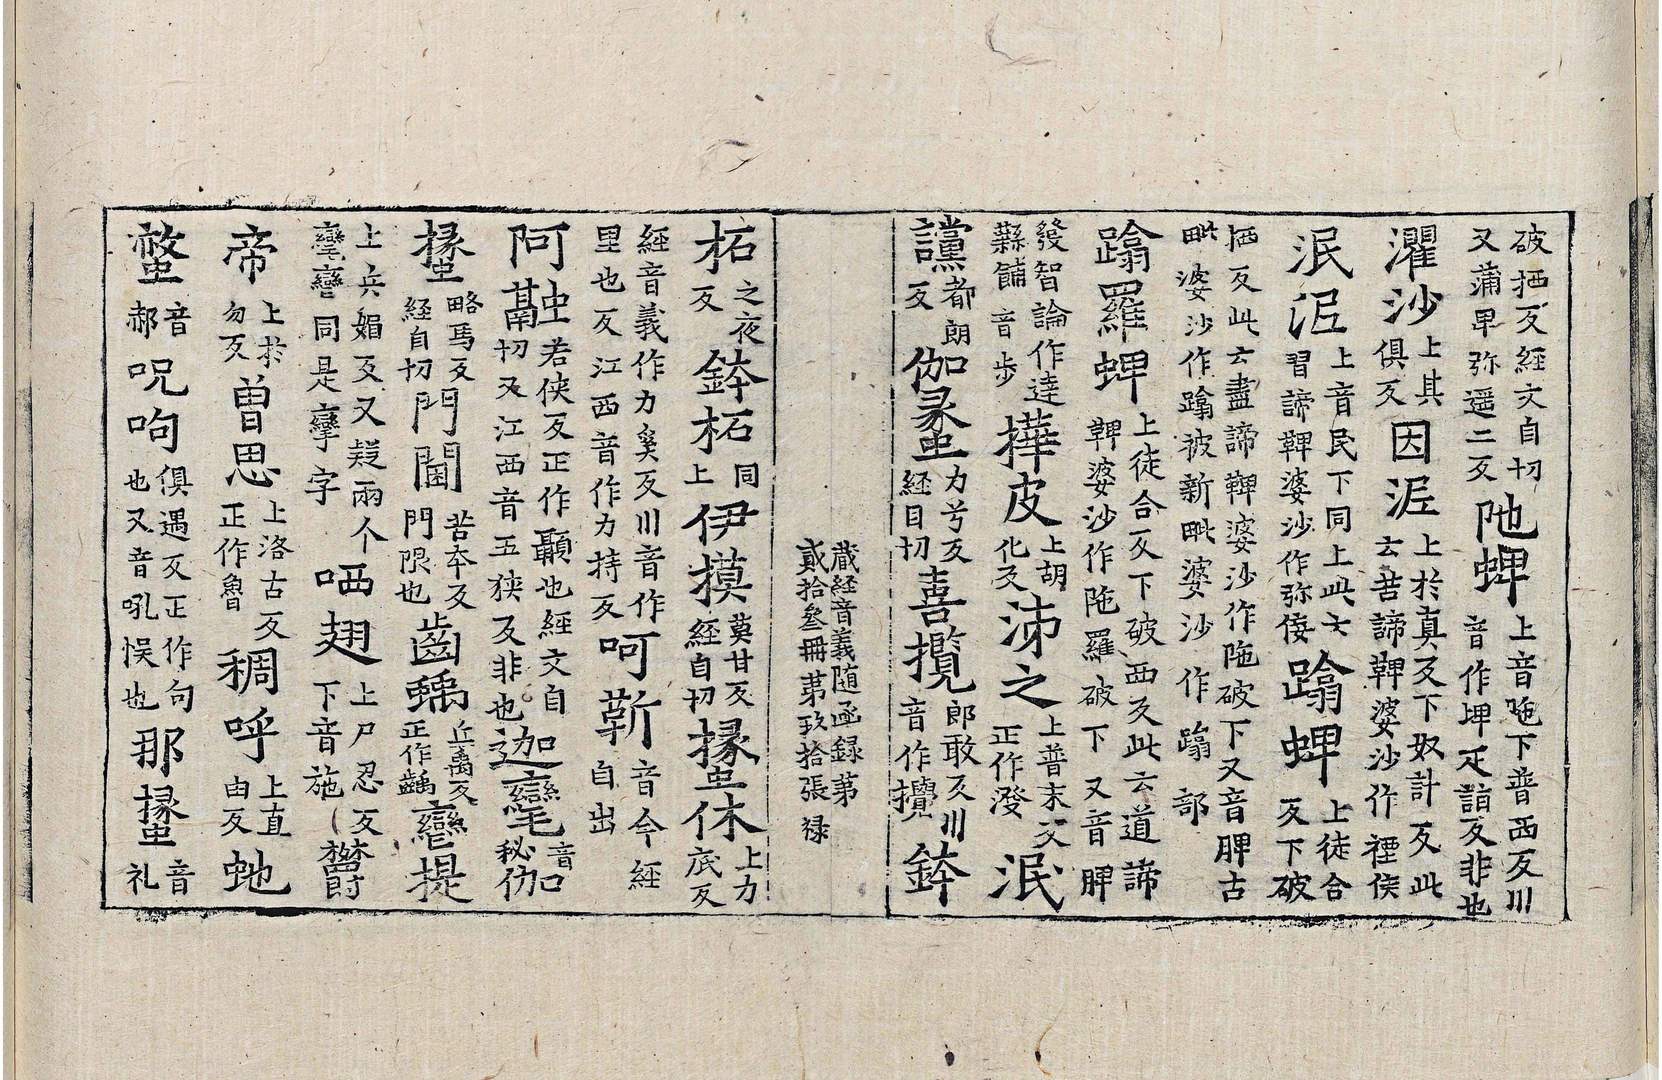 破拪反経文自切
又蒲畀弥遥二反
陁蜱
上音陁下普西反川
音作埤疋詣反非也
濯沙
上其
俱反
因泥
上於真反下奴計反此
云苦諦鞞婆沙作禋侇
泯泥
上音民下同上此云
習諦鞞婆沙作弥倭
蹹蜱
上徒合
反下破
拪反此云盡諦鞞婆沙作陁破下又音脾古
毗婆沙作蹹被新毗婆沙作蹹部
蹹羅蜱
上徒合反下破西反此云道諦
鞞婆沙作陁羅破下又音脾
發智論作達
蘂䬏音步
樺皮
上胡
化反
沛之
上普末反
正作潑
泯
讜
都朗
反
伽彖蟲
力兮反
経自切
喜攬
郎敢反川
音作攪
鉢
蔵経音義随函録第
貳拾叁冊第玖拾張禄
柘
之夜
反
鉢柘
同
上
伊摸
莫甘反
経自切
㨷休
上力
底反
経音義作力奚反川音作
里也反江西音作力持反
呵蕲
音今経
自出
阿𧖅
若侠反正作顳也経文自
切又江西音五狹反非也
迦㲶
音伽
秘
㨷
略焉反
経自切
門閫
苦本反
門限也
齒蝺
丘禹反
正作齲
戀提
上兵媚反又疑兩个
戀同是孿字
哂翅
上尸忍反
下音施
欝
帝
上於
勿反
曽思
上洛古反
正作魯
稠呼
上直
由反
虵
螫
音
郝
呪呴
俱遇反正作句
也又音吼悮也
那㨷
音
礼